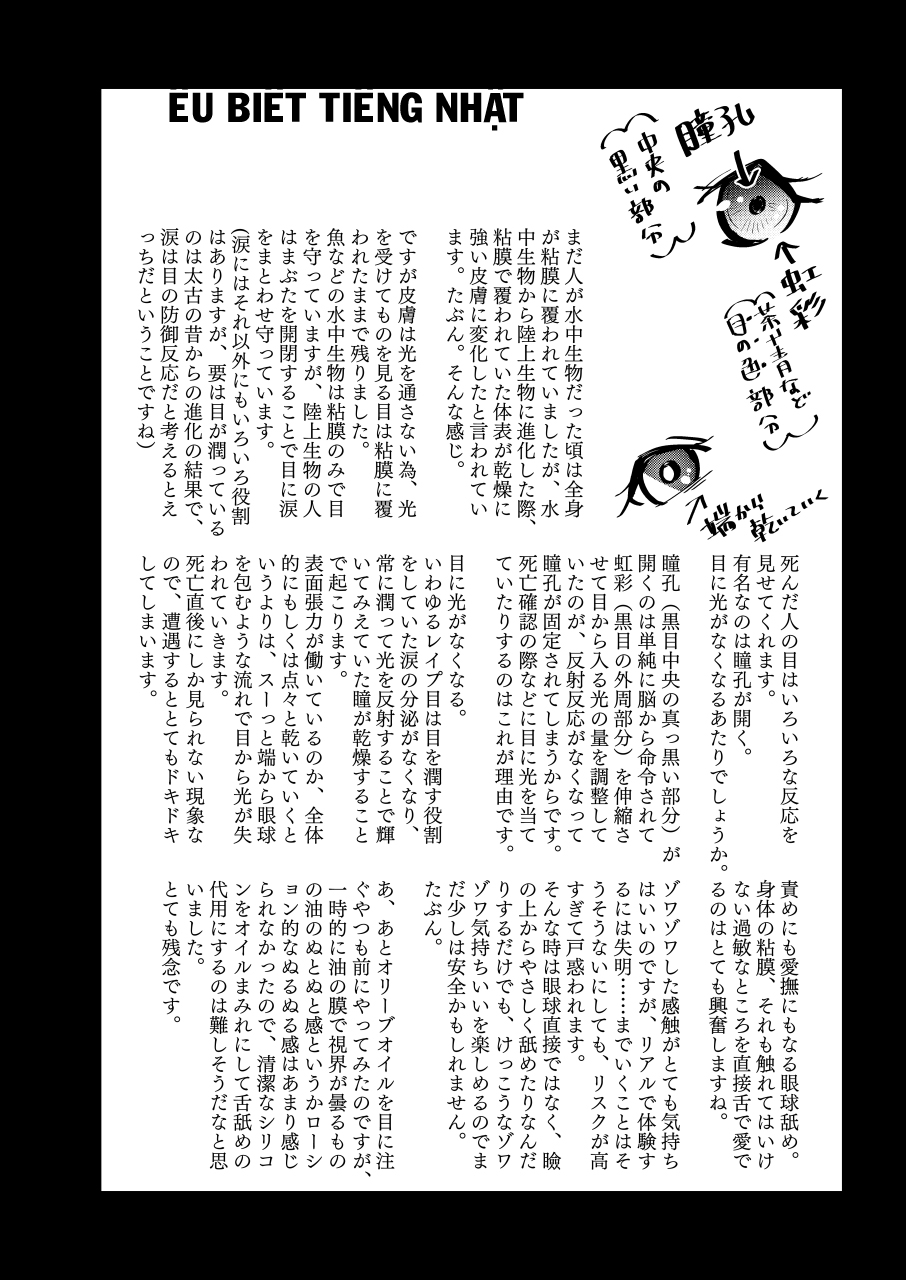 ẾU BIẾT TIẾNG NHẬT
瞳孔
中央の
黒い部分
虹彩
茶や青など
目の色部分
端から
乾いていく
まだ人が水中生物だった頃は全身
が粘膜に覆われていましたが、水
中生物から陸上生物に進化した際、
粘膜で覆われていた体表が乾燥に
強い皮膚に変化したと言われてい
ます。たぶん。そんな感じ。
ですが皮膚は光を通さない為、光
を受けてものを見る目は粘膜に覆
われたままで残りました。
魚などの水中生物は粘膜のみで目
を守っていますが、陸上生物の人
はまぶたを開閉することで目に涙
をまとわせ守っています。
(涙にはそれ以外にもいろいろ役割
はありますが、要は目が潤っている
のは太古の昔からの進化の結果で、
涙は目の防御反応だと考えるとえ
っちだということですね)
死んだ人の目はいろいろな反応を
見せてくれます。
有名なのは瞳孔が開く。
目に光がなくなるあたりでしょうか。
瞳孔（黒目中央の真っ黒い部分）が
開くのは単純に脳から命令されて
虹彩（黒目の外周部分）を伸縮さ
せて目から入る光の量を調整して
いたのが、反射反応がなくなって
瞳孔が固定されてしまうからです。
死亡確認の際などに目に光を当て
ていたりするのはこれが理由です。
目に光がなくなる。
いわゆるレイプ目は目を潤す役割
をしていた涙の分泌がなくなり、
常に潤って光を反射することで輝
いてみえていた瞳が乾燥すること
で起こります。
表面張力が働いているのか、全体
的にもしくは点々と乾いていくと
いうよりは、スーっと端から眼球
を包むような流れで目から光が失
われていきます。
死亡直後にしか見られない現象な
ので、遭遇するととてもドキドキ
してしまいます。
責めにも愛撫にもなる眼球舐め。
身体の粘膜、それも触れてはいけ
ない過敏なところを直接舌で愛で
るのはとても興奮しますね。
ゾワゾワした感触がとても気持ち
はいいのですが、リアルで体験す
るには失明……までいくことはそ
うそうないにしても、リスクが高
すぎて戸惑われます。
そんな時は眼球直接ではなく、瞼
の上からやさしく舐めたりなんだ
りするだけでも、けっこうなゾワ
ゾワ気持ちいいを楽しめるのでま
だ少しは安全かもしれません。
たぶん。
あ、あとオリーブオイルを目に注
ぐやつも前にやってみたのですが、
一時的に油の膜で視界が曇るもの
の油のぬとぬと感というかローシ
ョン的なぬるぬる感はあまり感じ
られなかったので、清潔なシリコ
ンをオイルまみれにして舌舐めの
代用にするのは難しそうだなと思
いました。
とても残念です。